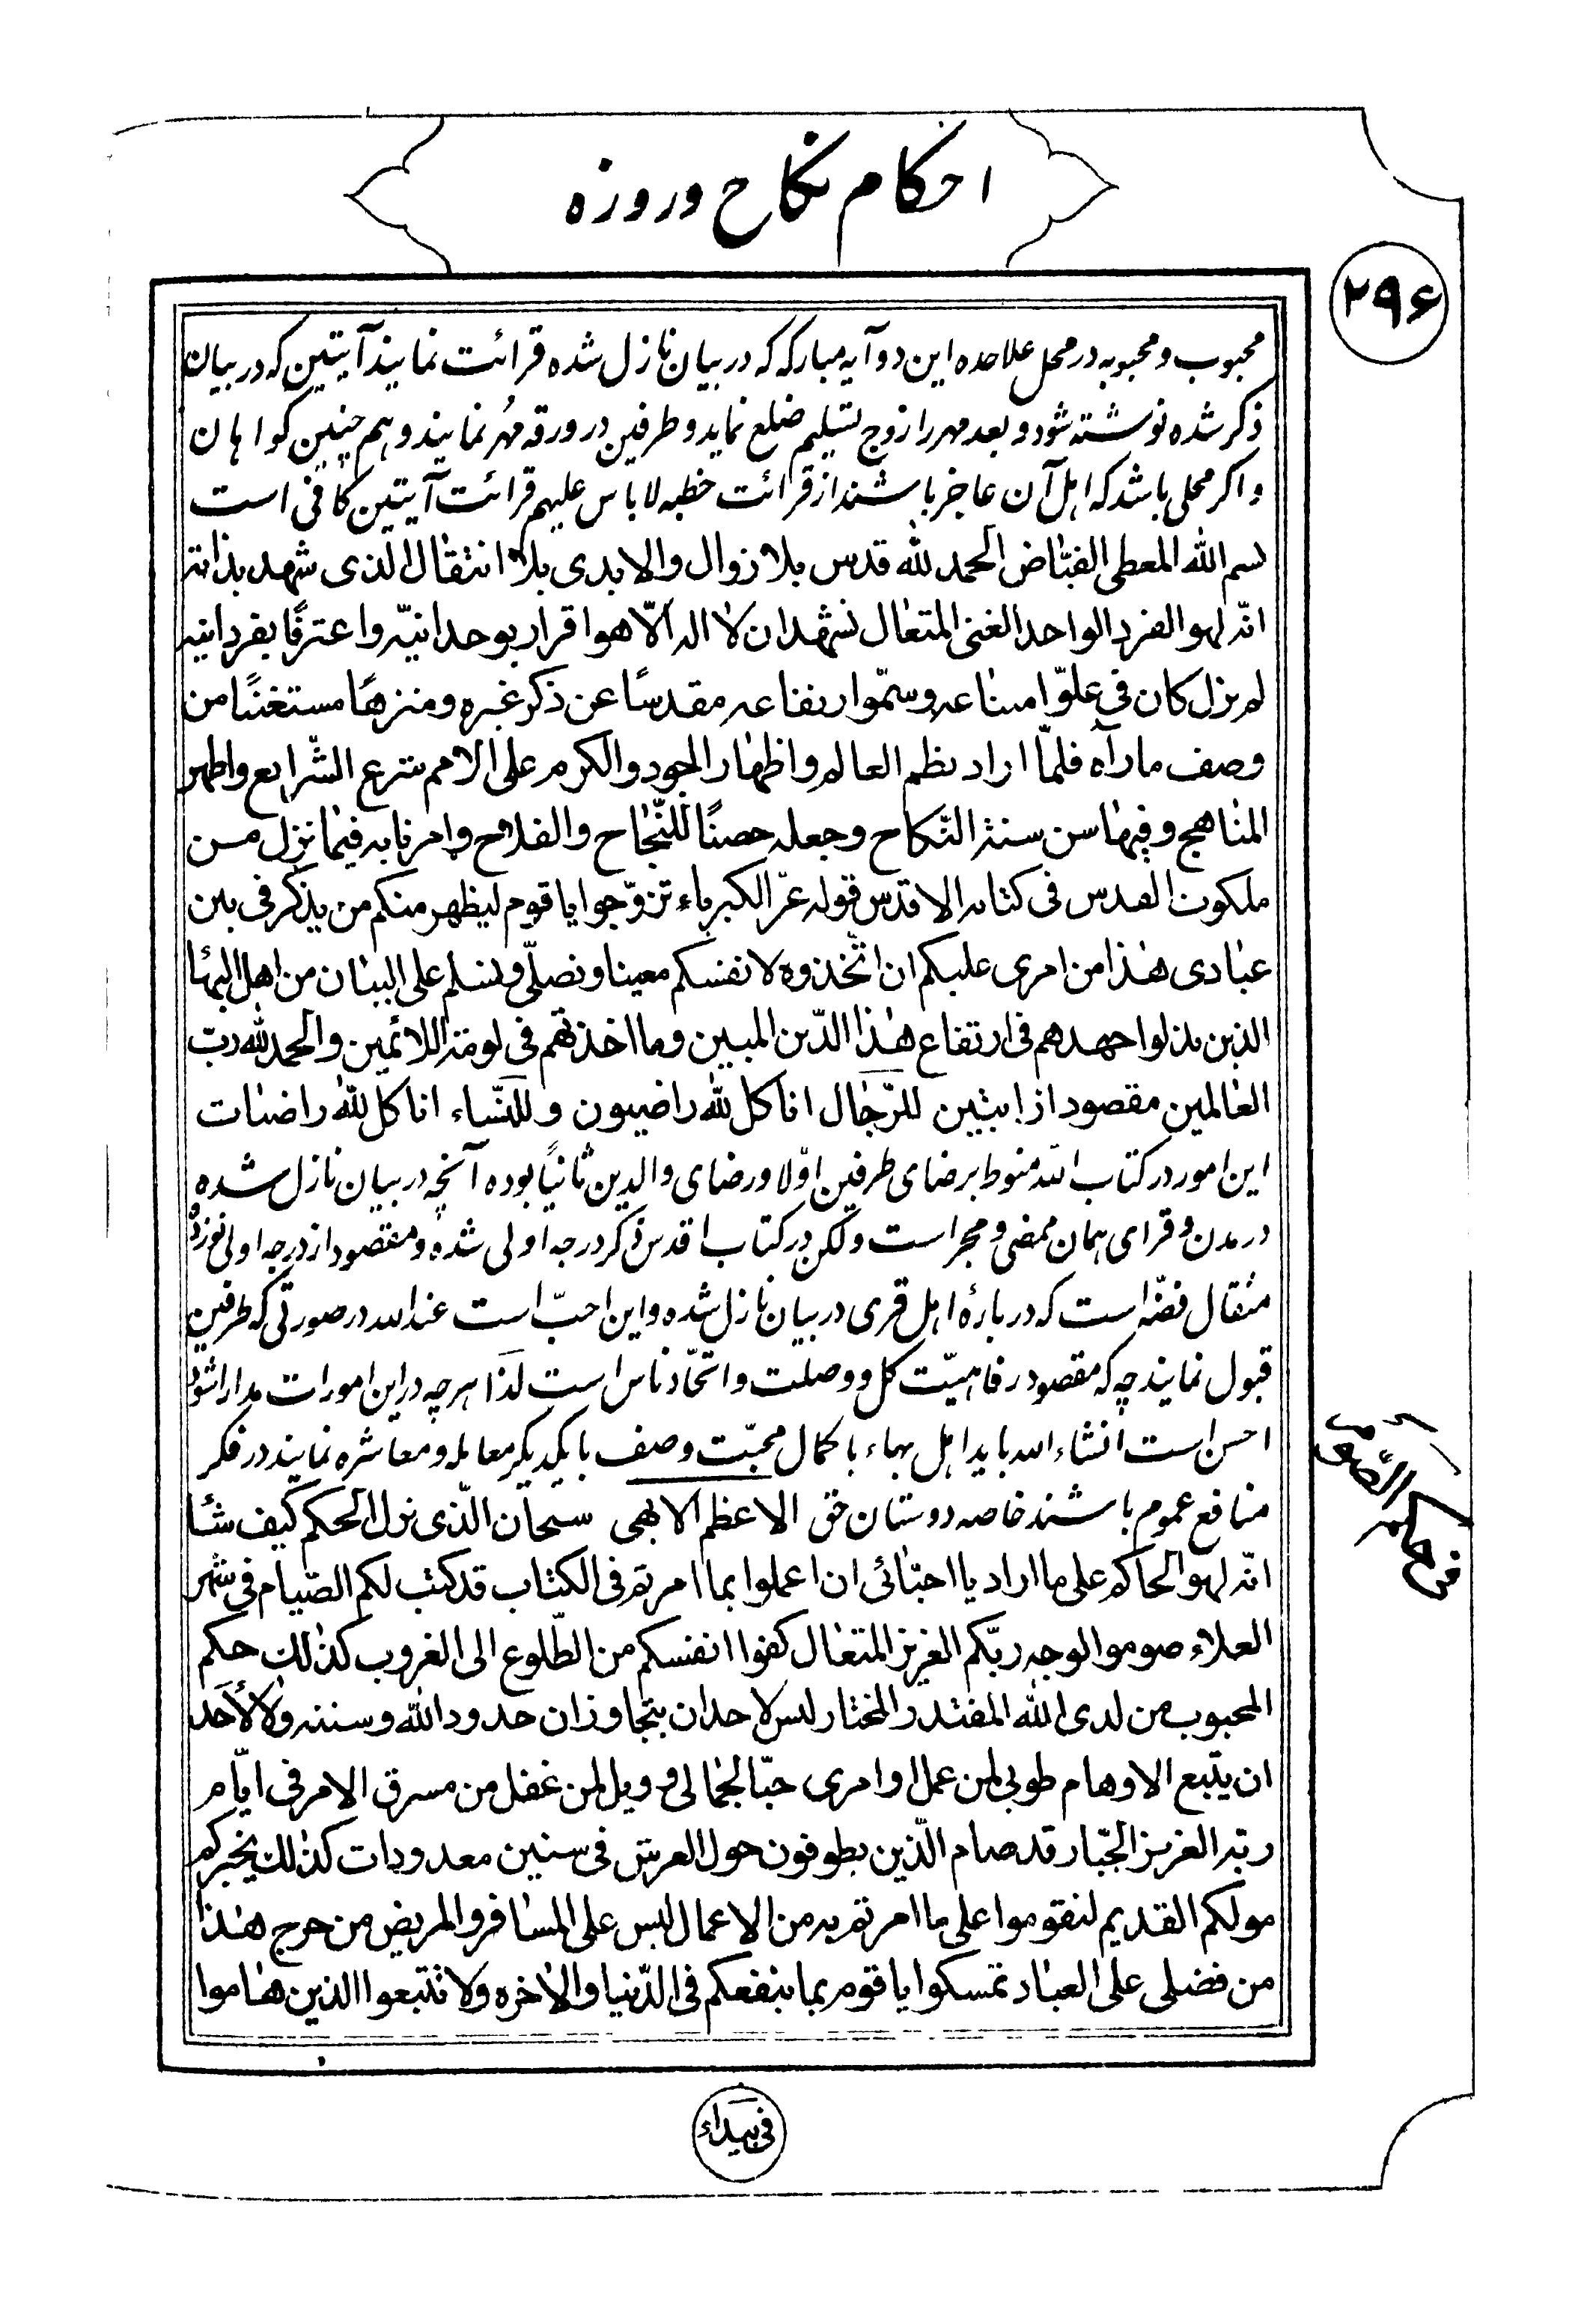 احکام نکاح وروزه
۲۹۶
محبوب و محبوبه در محل علاحده این دو آیه مبارکه که در بیان نازل شده قرائت نمایند آیتین که در بیان
ذکر شده نوشته شود و بعد مهر را زوج تسلیم ضلع نماید و طرفین در ورقه مُهر نمایند و هم چنین کواهان
و اکر محلی باشد که اهل آن عاجز باشند از قرائت خطبه لاباس علیهم قرائت آیتین کافی است
بسم الله المعطی الفیّاض الحمد لله قدس بلا زوال والابدی بلا انتقال الذی شهد بذاته
انّه لهو الفرد الواحد الغنی المتعال نشهد ان لا اله الّا هو اقرار بوحدانیّه واعترفًا بفردانیه
لم یزل کان فی علوّ امتناعه وسموّ ارتفاعه مقدسًا عن ذکر غیره ومنزهًا مستغنیًا من
وصف ماراه فلمّا اراد نظم العالم واظهار الجود والکرم علی الامم شرع الشّرایع واظهر
المناهج وفیها سن سنة النّکاح وجعله حصنًا للنّجاح والفلاح وامرنا به فیما نزل من
ملکوت القدس فی کتابه الاقدس قوله عزّ الکبریاء تزوّجوا یا قوم لیظهر منکم من یذکرنی بین
عبادی هذا من امری علیکم ان اتّخذوه لانفسکم معینا ونصلّی ونسلم علی البیان من اهل البهاء
الذین بذلوا جهدهم فی ارتفاع هذا الدّین المبین وما اخذتهم فی لومة اللائمین والحمد لله ربّ
العالمین مقصود از ایتین للرّجال انا کل لله راضیون وللنّساء انا کل لله راضیات
این امور در کتاب الله منوط برضای طرفین اوّلا ورضای والدین ثانیًا بوده آنچه در بیان نازل شده
در مدن وقرای همان ممضی ومجر است ولکن در کتاب اقدس ذکر درجه اولی شده ومقصود از درجه اولی نوزده
مثقال فضّه است که دربارهٔ اهل قری در بیان نازل شده واین احبّ است عند الله در صورتی که طرفین
قبول نمایند چه که مقصود رفاهیّت کل ووصلت واتحّاد ناس است لذا هر چه در این امورات مدارا شود
احسن است انشاءالله باید اهل بهاء با کمال محبّت وصف با یکدیکر معامله ومعاشره نمایند در فکر
منافع عموم باشند خاصه دوستان حق الاعظم الابهی سبحان الّذی نزل الحکم کیف شاء
انّه لهو الحاکم علی ما اراد یا احبّائی ان اعملوا بما امرتم فی الکتاب قد کتب لکم الصّیام فی شهر
العلاء صوموا لوجه ربّکم العزیز المتعال کفوا انفسکم من الطّلوع الی الغروب کذلک حکم
المحبوب من لدی الله المقتدر المختار لیس لاحد ان یتجاوز ان حدود الله وسننه ولا لأحد
ان یتّبع الاوهام طوبی لمن عمل اوامری حبّا لجمالی و ویل لمن غفل من مسرق الامر فی ایّام
ربّه العزیز الجبّار قد صام الّذین یطوفون حول العرش فی سنین معدودات کذلک یخبرکم
مولکم القدیم لتقوموا علی ما امرتم به من الاعمال لیس علی المسافر والمریض من حرج هذا
من فضلی علی العباد تمسکوا یا قوم بما ینفعکم فی الدّنیا والاخره ولا تتبعوا الذین هاموا
فی حکم الصّوم
فی بیداء